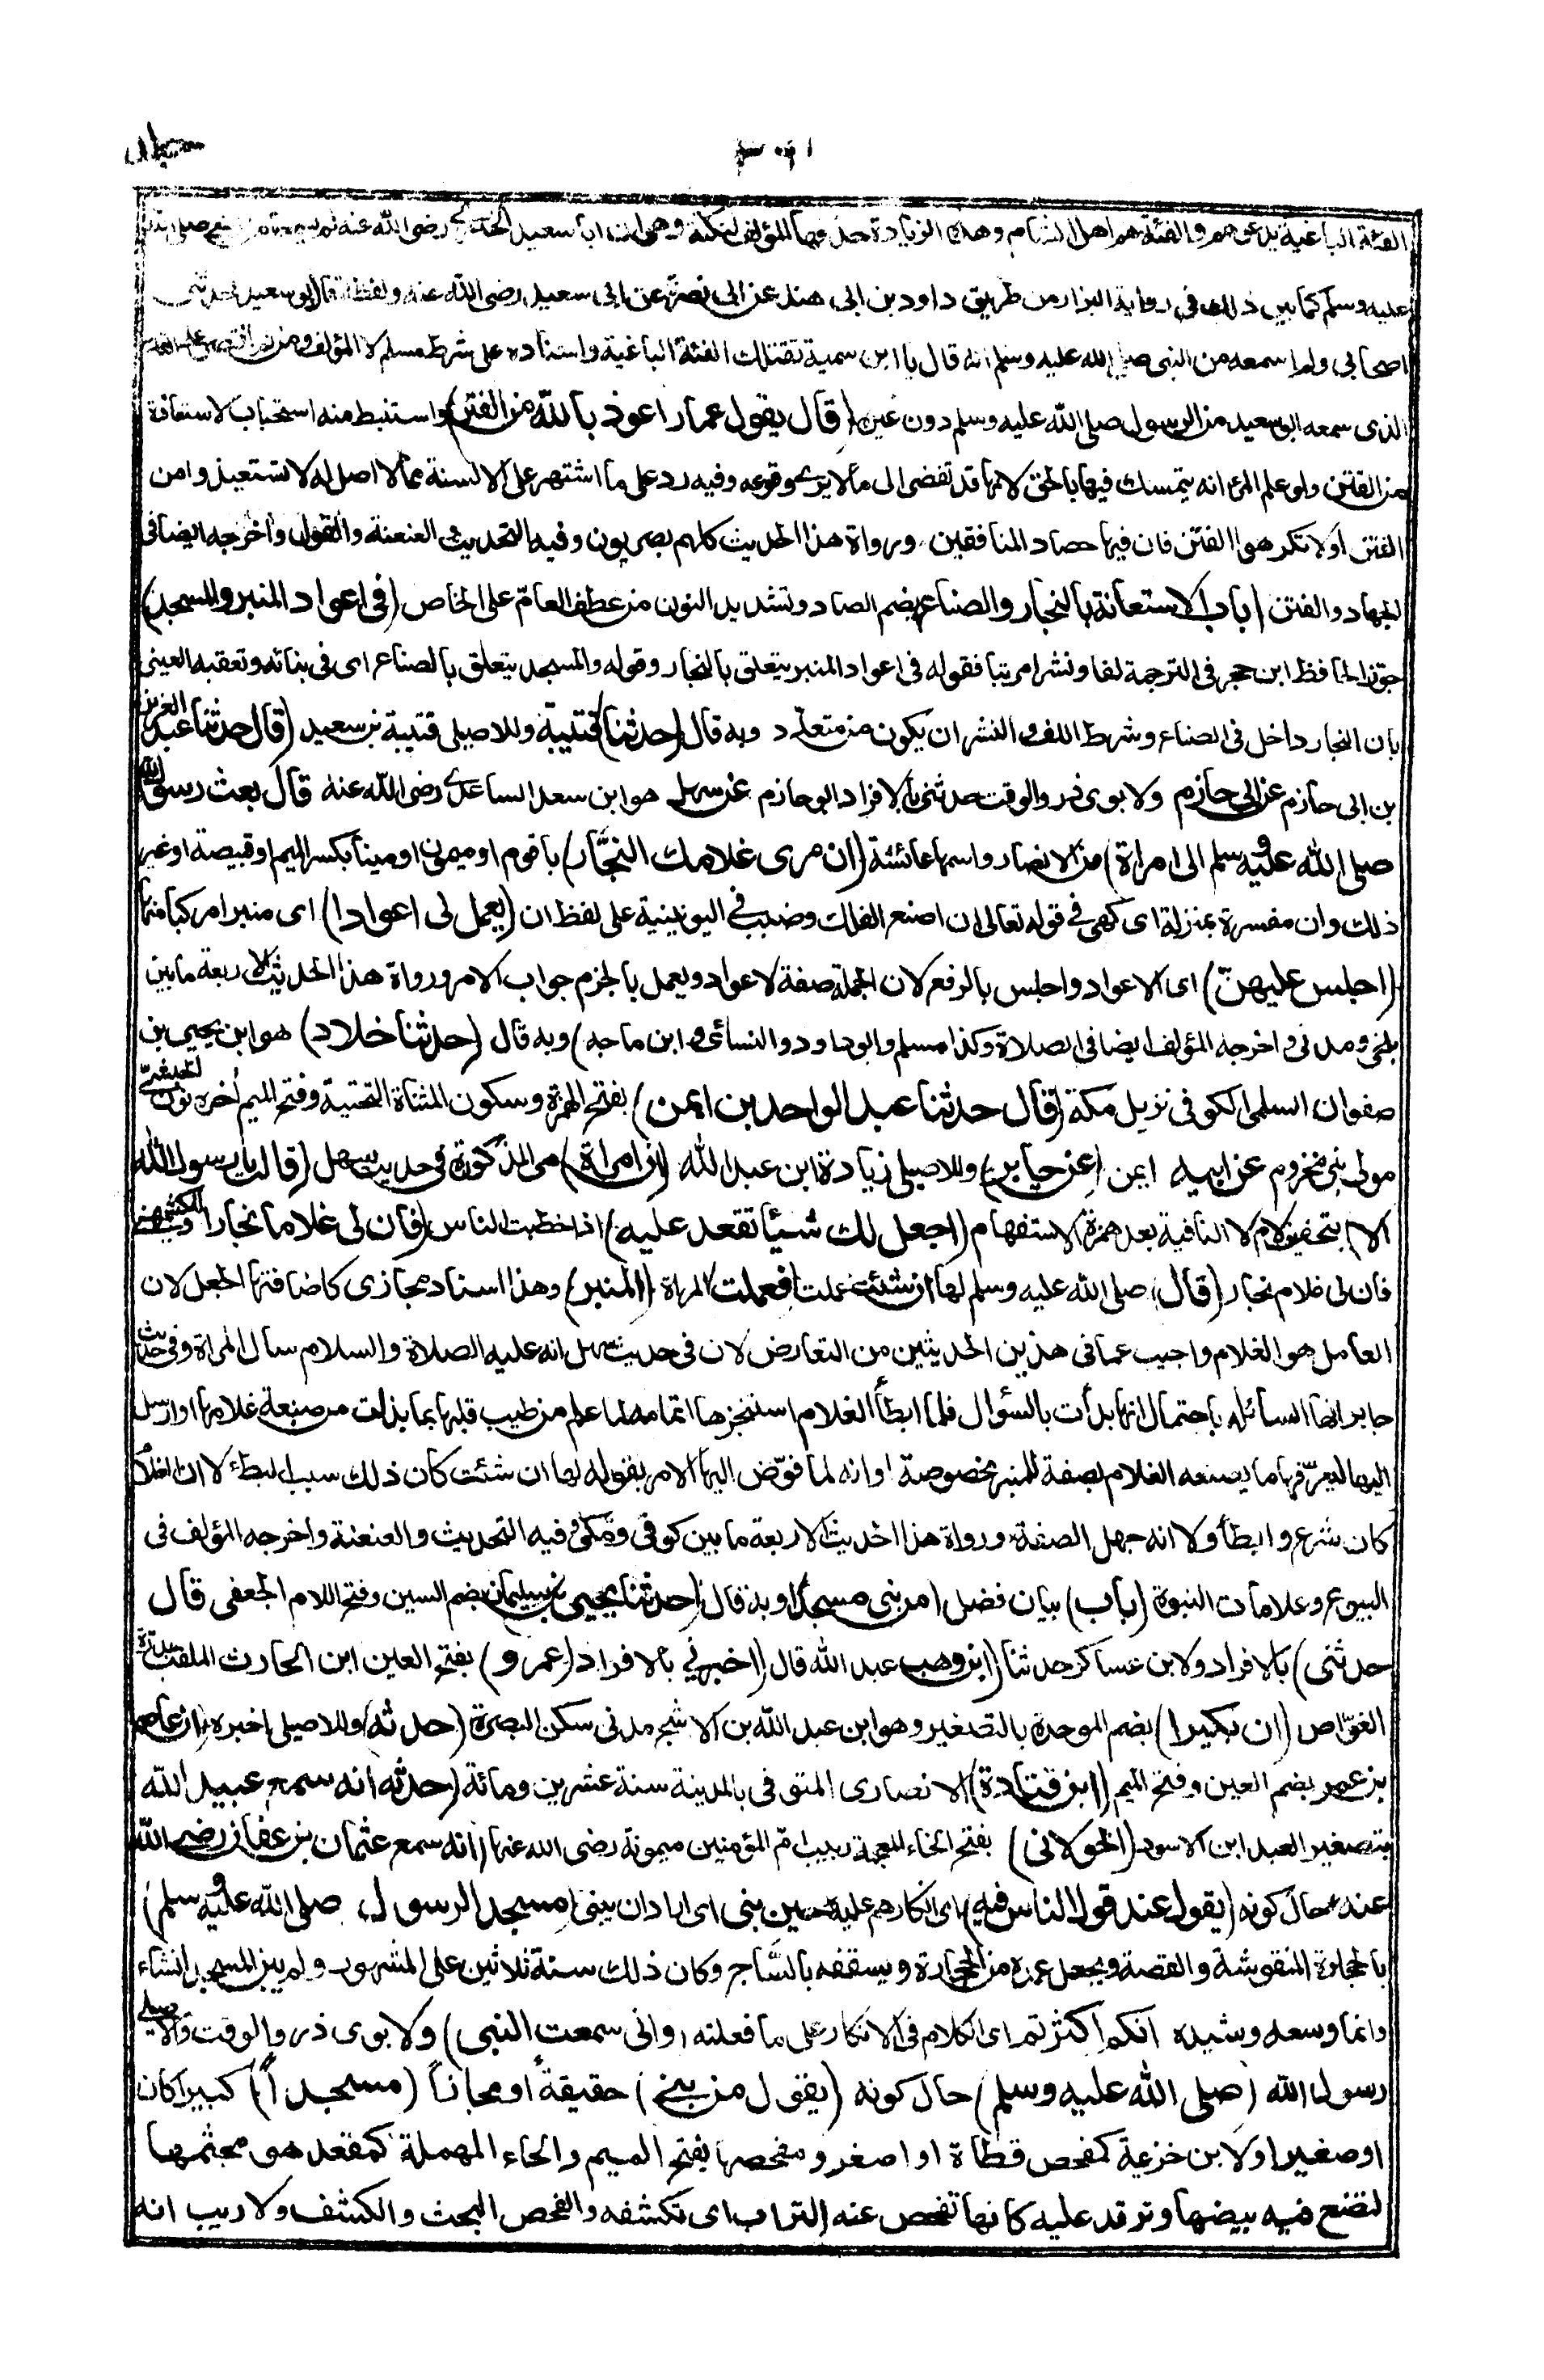 الفئة الباغية يدعوهم والفئة هم اهل الشام وهذه الزيادة حذفها المؤلف لنكتة وهى ان ابا سعيد الخدرى رضى الله عنه لم يسمعها من النبى صلى الله
عليه وسلم كما بين ذلك فى رواية البزار من طريق داود بن ابى هند عن ابى نضرة عن ابى سعيد رضى الله عنه ولفظه قال ابو سعيد حدثنى
اصحابى ولم اسمعه من النبى صلى الله عليه وسلم انه قال يا ابن سمية تقتلك الفئة الباغية واسناده على شرط مسلم لا المؤلف ومن ثم اقتصر على القدر
الذى سمعه ابو سعيد من الرسول صلى الله عليه وسلم دون غيره (قال يقول عمار اعوذ بالله من الفتن) واستنبط منه استحباب الاستعاذة
من الفتن ولو علم المرء انه يتمسك فيها بالحق لانها قد تفضى الى مالا يرى وقوعه وفيه رد على ما اشتهر على الالسنة مما لا اصل له لا تستعيذوا من
الفتن او لا تكرهوا الفتن فان فيها حصاد المنافقين ورواة هذا الحديث كلهم بصريون وفيه التحديث والعنعنة والقول واخرجه ايضا فى
الجهاد والفتن (باب الاستعانة بالنجار والصناع بضم الصاد وتشديد النون من عطف العام على الخاص (فى اعواد المنبر والمسجد)
جوّز الحافظ ابن حجر فى الترجمة لفا ونشرا مرتبا فقوله فى اعواد المنبر يتعلق بالنجار وقوله والمسجد يتعلق بالصناع اى فى بنائه وتعقبه العينى
بان النجار داخل فى الصناع وشرط اللف والنشر ان يكون من متعدّد وبه قال (حدثنا) قتيبة وللاصيلى قتيبة بن سعيد (قال حدثنا عبد العزيز
بن ابى حازم عن ابى حازم ولابوى ذر والوقت حدثنى بالافراد ابو حازم عن سهل هو ابن سعد الساعدى رضى الله عنه قال بعث رسول الله
صلى الله عليه وسلم الى امراة) من الانصار واسمها عائشة (ان مرى غلامك النجّار) باقوم او ميمون او مينا بكسر الميم او قبيصة او غير
ذلك وان مفسرة بمنزلة اى كهى فى قوله تعالى ان اصنع الفلك وضبب فى اليونينية على لفظ ان (يعمل لى اعوادا) اى منبرا مركبا منها
(اجلس عليهنّ) اى الاعواد واجلس بالرفع لان الجملة صفة لاعواد ويعمل بالجزم جواب الامر ورواة هذا الحديث الاربعة ما بين
بلخى ومدنى واخرجه المؤلف ايضا فى الصلاة وكذا مسلم وابو داود والنسائى وابن ماجه) وبه قال (حدثنا خلاد) هو ابن يحيى بن
صفوان السلمى الكوفى نزيل مكة (قال حدثنا عبد الواحد بن ايمن) بفتح الهمزة وسكون المثناة التحتية وفتح الميم اخره نون الحبشىّ
مولى بنى مخزوم عن ابيه ايمن (عن جابر) وللاصيلى زيادة ابن عبد الله (ان امراة) هى المذكورة فى حديث سهل (قالت يا رسول الله
الا) بتخفيف لام لا النافية بعد همزة الاستفهام (اجعل لك شيئا تقعد عليه) اذا خطبت الناس (فان لى غلاما نجارا) وللكشميهنى
فان لى غلام نجار (قال) صلى الله عليه وسلم لها ان شئت عملت (فعملت) المراة (المنبر) وهذا اسناد مجازى كاضافتها الجعل لان
العامل هو الغلام واجيب عما فى هذين الحديثين من التعارض لان فى حديث سهل انه عليه الصلاة والسلام سال المراة وفى حديث
جابر انها السائلة باحتمال انها بدأت بالسؤال فلما ابطأ الغلام استنجزها اتمامه لما علم من طيب قلبها بما بذلت من صنعة غلامها او ارسل
اليها ليعرّفها ما يصنعه الغلام بصفة للمنبر مخصوصة او انه لما فوّض اليها الامر بقوله لها ان شئت كان ذلك سبب البطء لا ان الغلام
كان شرع وابطأ ولا انه جهل الصفة ورواة هذا الحديث الاربعة ما بين كوفى ومكى وفيه التحديث والعنعنة واخرجه المؤلف فى
البيوع وعلامات النبوة (باب) بيان فضل (من بنى مسجدا) وبه قال (حدثنا يحيى بن سليمان بضم السين وفتح اللام الجعفى قال
حدثنى) بالافراد ولابن عساكر حدثنا (ابن وهب عبد الله قال (اخبرنى بالافراد (عمرو) بفتح العين ابن الحارث الملقب بدرّة
الغوّاص (ان بكيرا) بضم الموحدة بالتصغير وهو ابن عبد الله بن الاشج مدنى سكن البصرة (حدثه) وللاصيلى اخبره (ان عاصم
بن عمر بضم العين وفتح الميم (ابن قتادة) الانصارى المتوفى بالمدينة سنة عشرين ومائة (حدثه انه سمع عبيد الله
بتصغير العبد ابن الاسود (الخولانى) بفتح الخاء المعجمة ربيب امّ المؤمنين ميمونة رضى الله عنها (انه سمع عثمان بن عفان رضى الله
عنه حال كونه (يقول عند قول الناس فيه) اى انكارهم عليه حين بنى اى اراد ان يبنى (مسجد الرسول صلى الله عليه وسلم)
بالحجارة المنقوشة والقصة ويجعل عمده من الحجارة ويسقفه بالسّاج وكان ذلك سنة ثلاثين على المشهور ولم يبن المسجد انشاء
وانما وسعه وشيده انكم اكثرتم اى الكلام فى الانكار على ما فعلته (وانى سمعت النبى) ولابوى ذر والوقت والاصيلى
رسول الله (صلى الله عليه وسلم) حال كونه (يقول من بنى) حقيقةً او مجازاً (مسجداً) كبيرا كان
او صغيرا ولابن خزيمة كمفحص قطاة او اصغر ومفحصها بفتح الميم والحاء المهملة كمقعد هو مجثمها
لتضع فيه بيضها وترقد عليه كانها تفحص عنه التراب اى تكشفه والفحص البحث والكشف ولا ريب انه